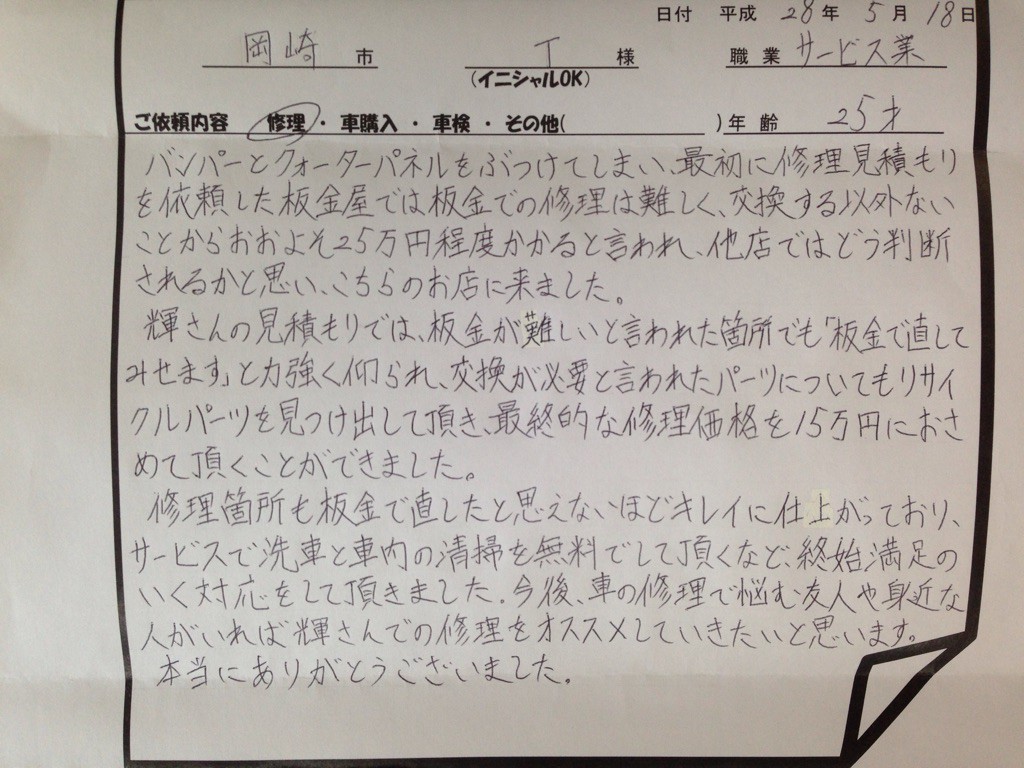 日付 平成 28年 5月 18日
岡崎 市 T 様 職業 サービス業
(イニシャルOK)
ご依頼内容 修理・車購入・車検・その他( )年齢 25才
バンパーとクォーターパネルをぶつけてしまい、最初に修理見積もり
を依頼した板金屋では板金での修理は難しく、交換する以外ない
ことからおおよそ25万円程度かかると言われ、他店ではどう判断
されるかと思い、こちらのお店に来ました。
輝さんの見積もりでは、板金が難しいと言われた箇所でも「板金で直して
みせます」と力強く仰られ、交換が必要と言われたパーツについてもリサイ
クルパーツを見つけ出して頂き、最終的な修理価格を15万円におさ
めて頂くことができました。
修理箇所も板金で直したと思えないほどキレイに仕上がっており、
サービスで洗車と車内の清掃を無料でして頂くなど、終始満足の
いく対応をして頂きました。今後、車の修理で悩む友人や身近な
人がいれば輝さんでの修理をオススメしていきたいと思います。
本当にありがとうございました。